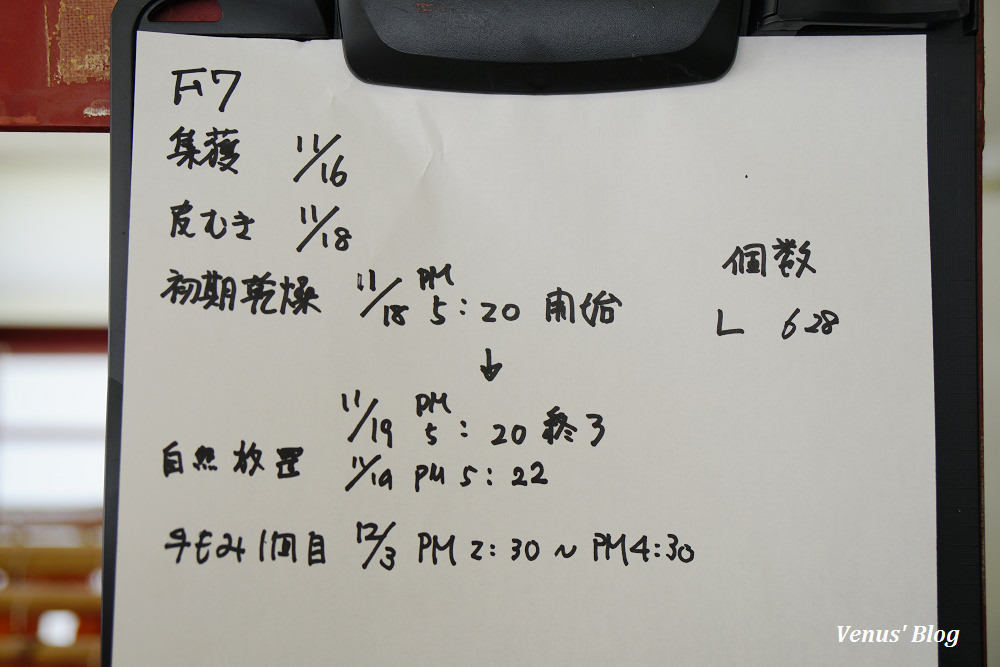 F7
集獲 11/16
皮むき 11/18
初期乾燥 11/18 PM 5:20 開始
↓
11/19 PM 5:20 終了
自然放置 11/19 PM 5:22
手もみ1回目 12/3 PM 2:30 ~ PM 4:30
個数
L 628
Venus' Blog